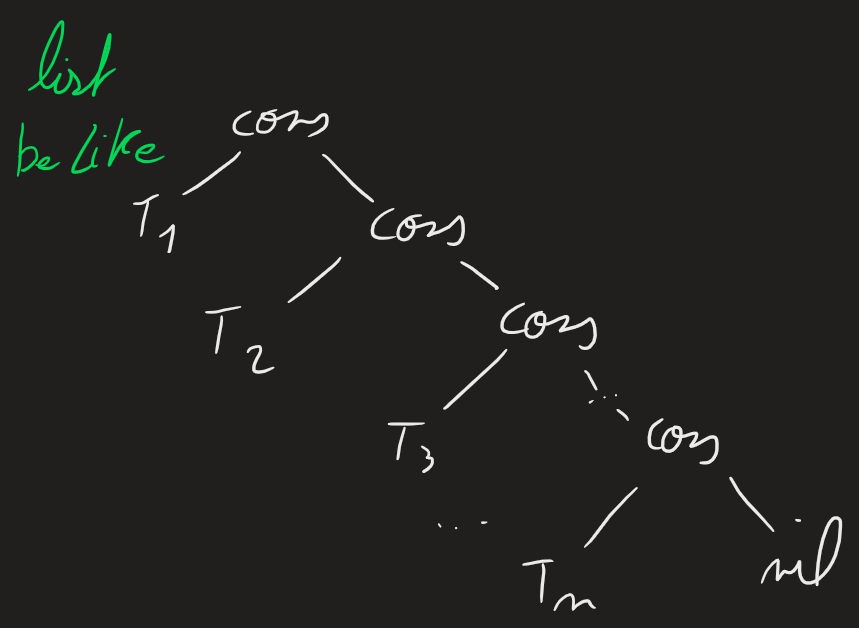 list
be like
cons
T1
cons
T2
cons
T3
...
cons
...
Tn
nil